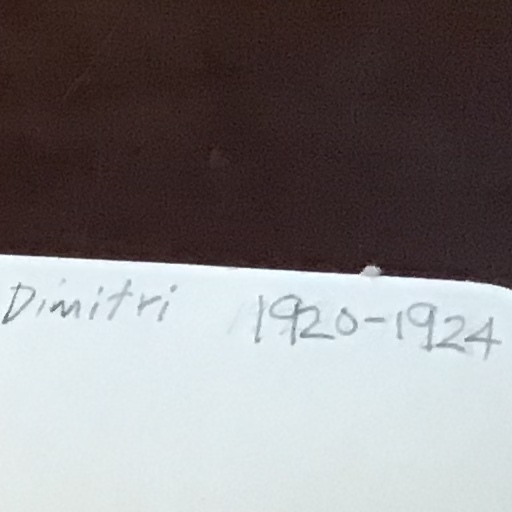 Dimitri 1920-1924